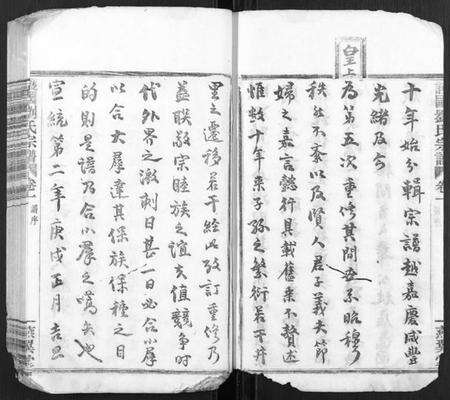 十年始分輯宗譜越嘉慶咸豐
光緒及今
皇上為第五次重修其間世系昭穆
秩然不紊以及賢人君子義夫節
婦之嘉言懿行具載舊乘不贅述
惟數十年來子孫之繁衍若干丼
里之遷移若干經此攷訂重修乃
益聯敬宗睦族之誼夫值競爭時
代外界之激刺日甚一日必合小羣
以合大羣達其保族保種之目
的則是譜乃合小羣之嚆矢也
宣統第二年庚戌五月吉旦
氏宗譜
卷一
譜序